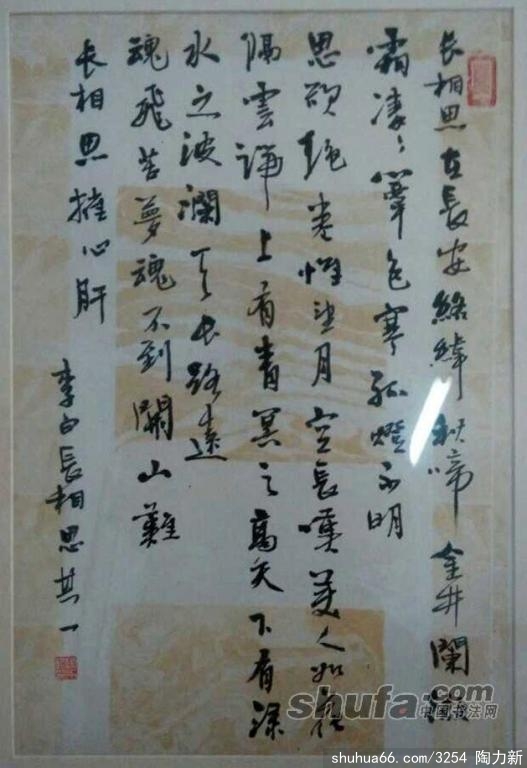 长相思在長安絡緯秋啼金井闌微
霜凄〻簟色寒孤燈不明
思欲絶卷帷望月空長嘆美人如花
隔雲端上有青冥之高天下有渌
水之波瀾天长路遠
魂飛苦夢魂不到關山難
长相思摧心肝
李白長相思其一
shufa.com
中国书法网
shuhua66.com/3254 陶力新